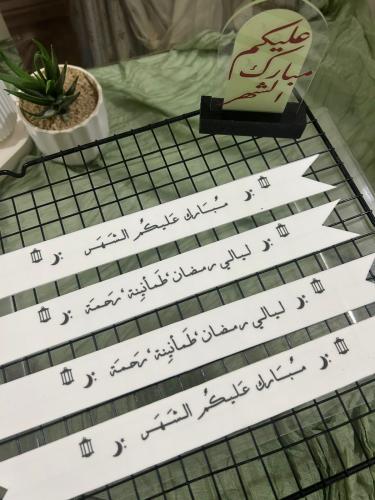 عليكم
مبارك
الشهر
مُبَارك عَليكُم الشَهَر
ليالي رمضان طَمأنِينة، رَحمَة
ليالي رمضان طَمأنِينة، رَحمَة
مُبَارك عَليكُم الشَهَر